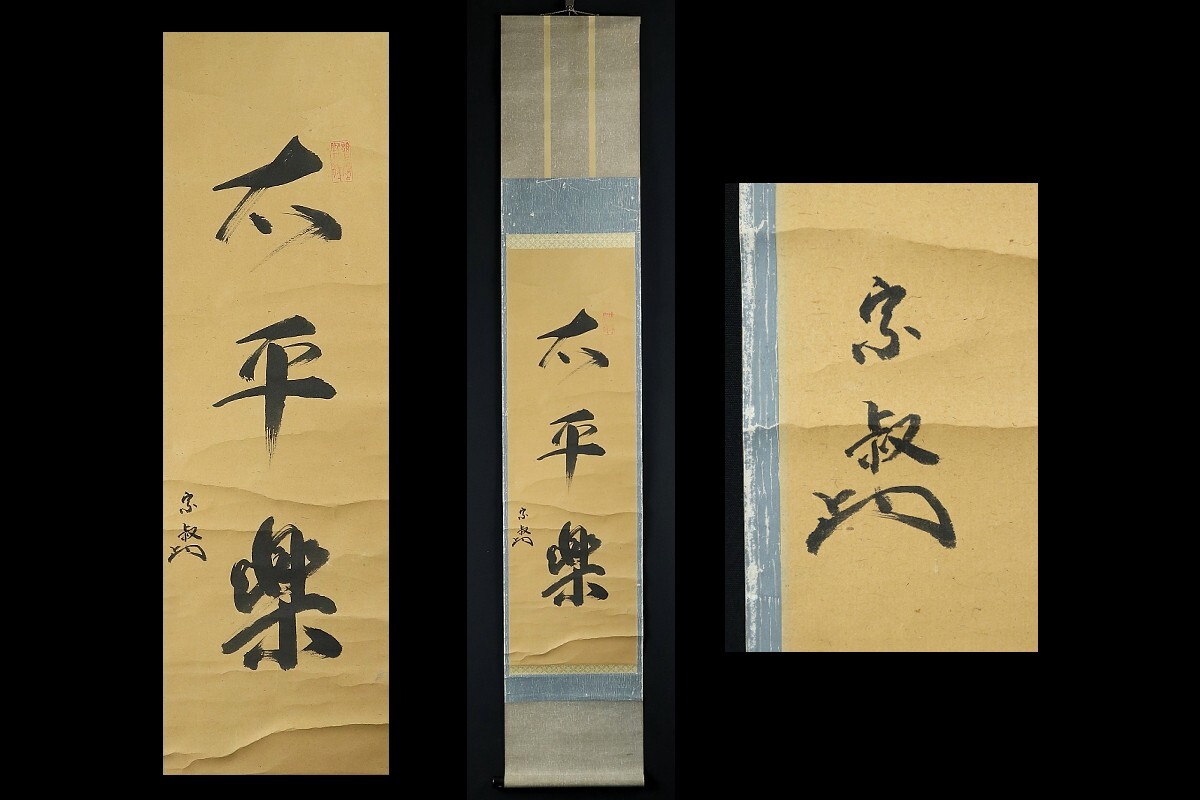 太平樂
宗叔
太平樂
宗叔
宗叔